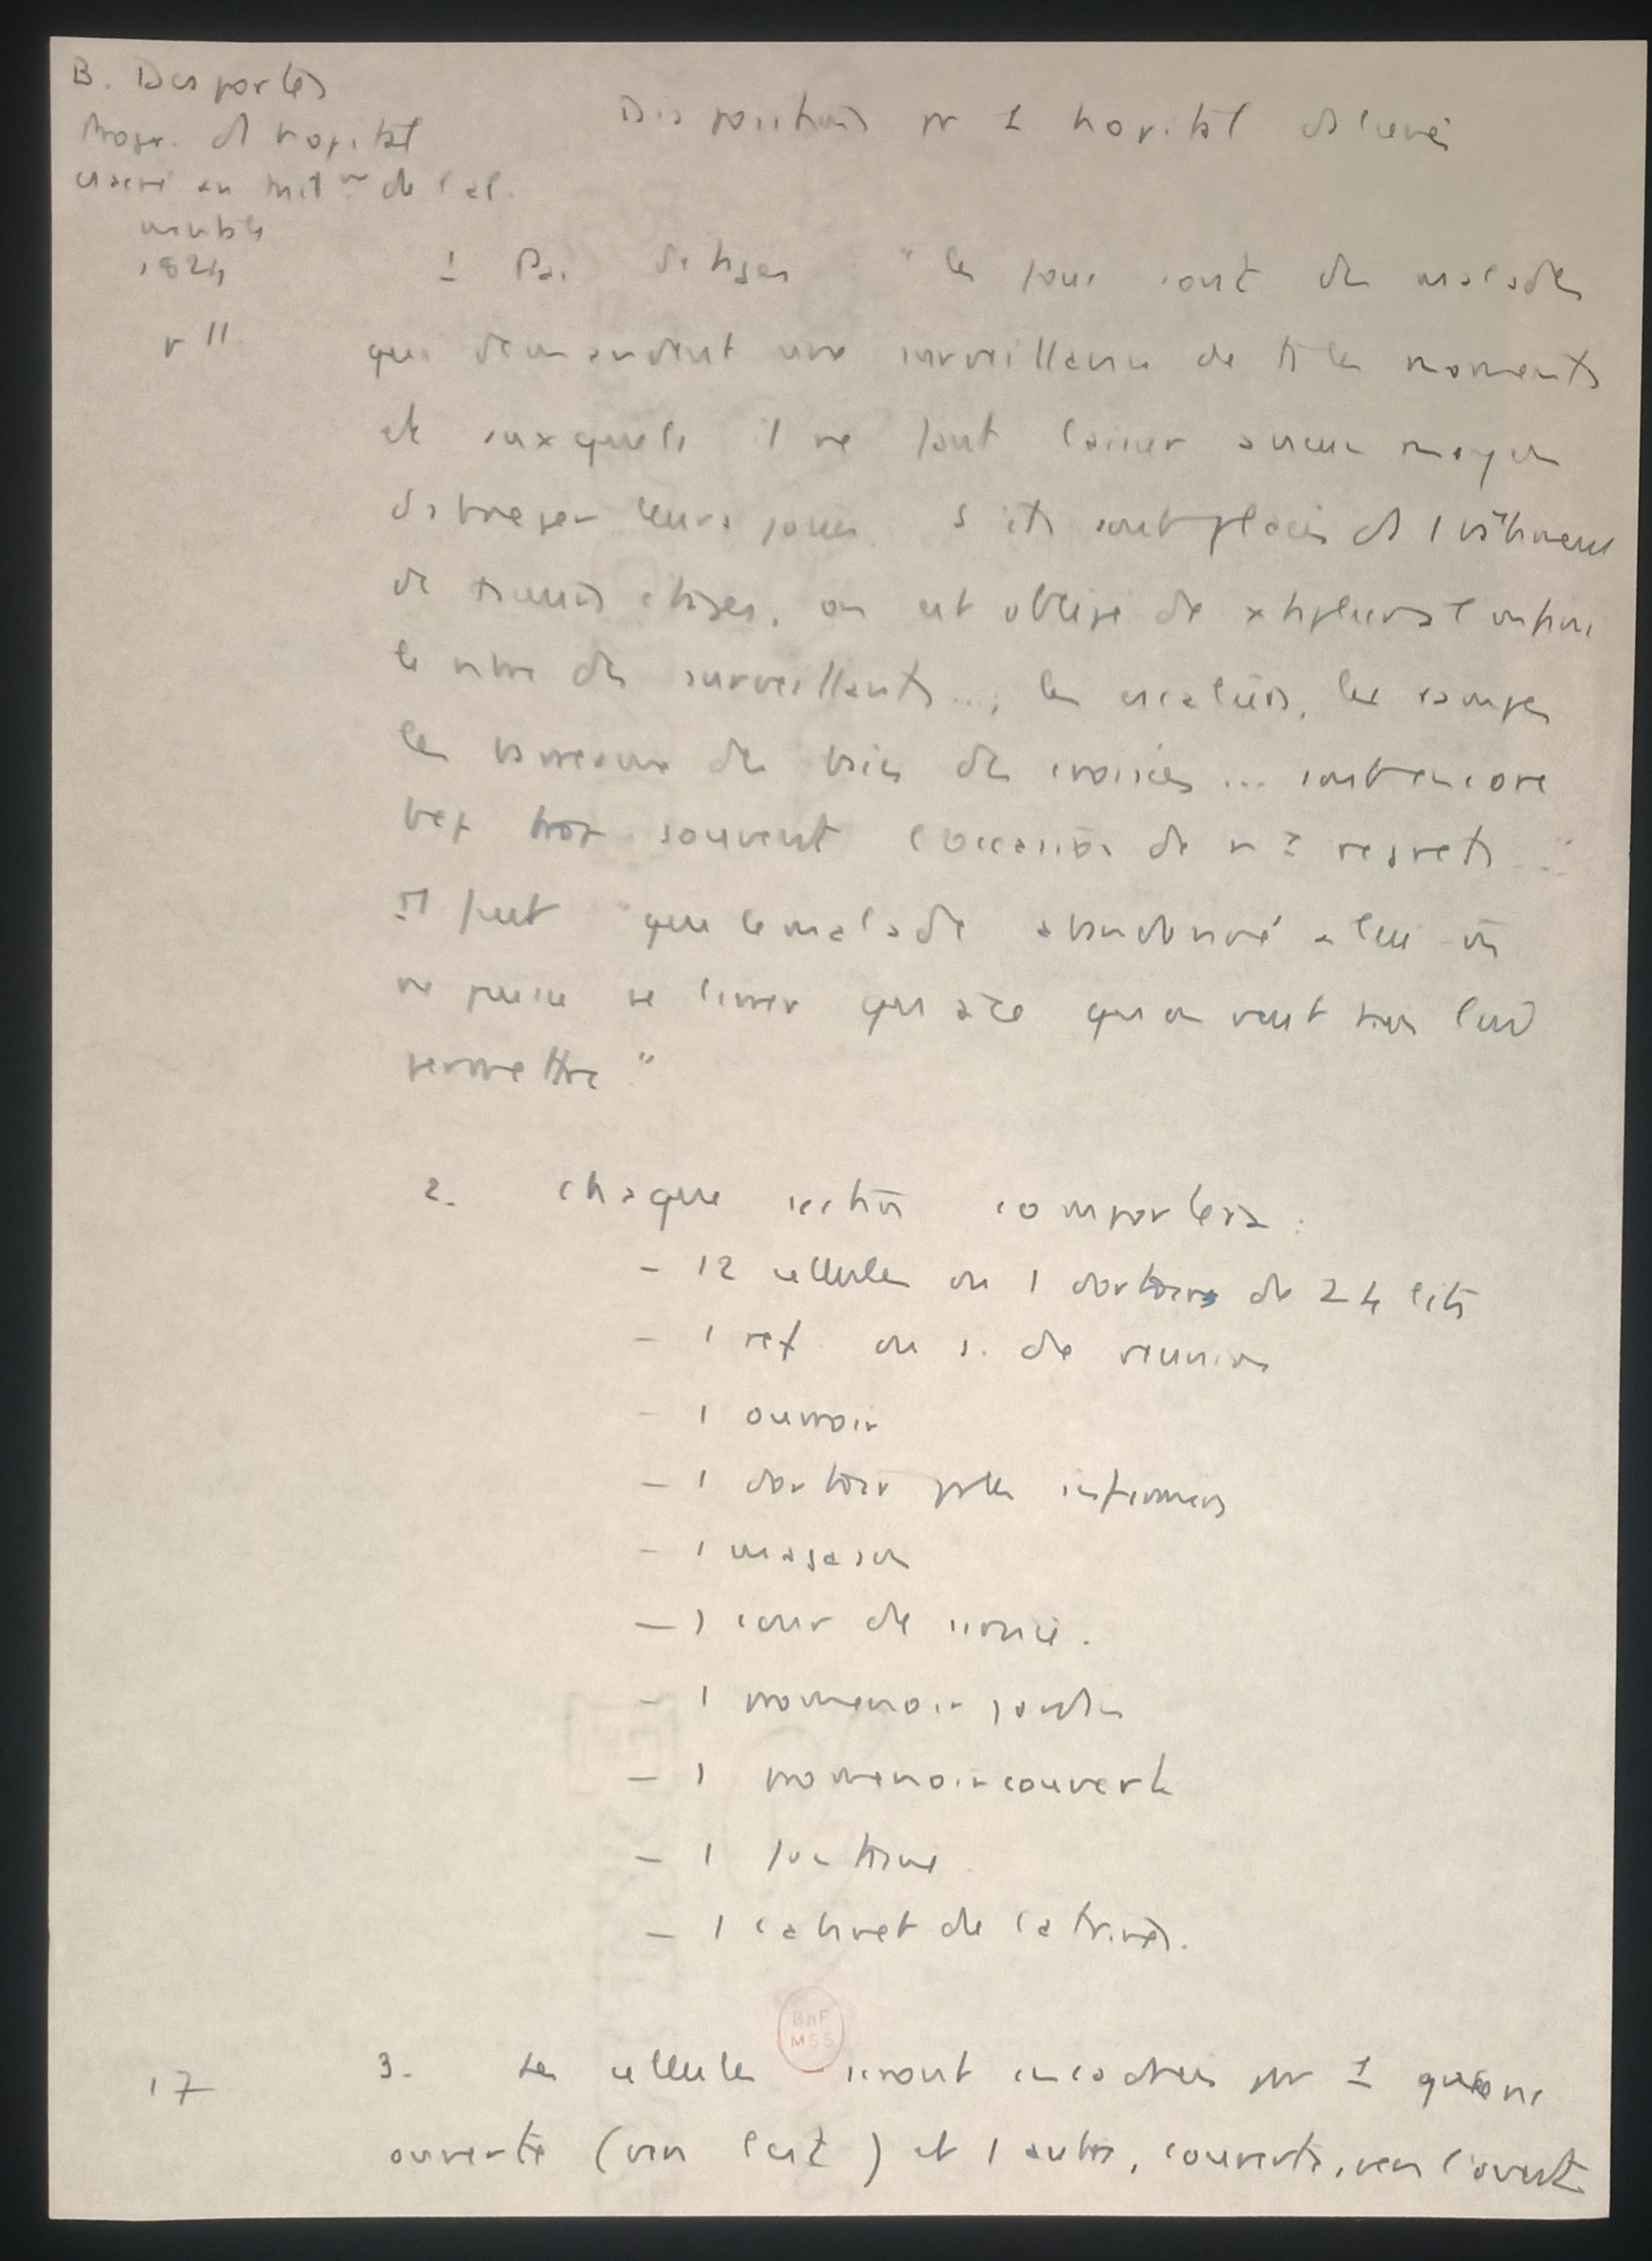 B. Desportes
Progr. d1 hopital
csacré au trait de l al.
mentale
1824
p 11
Dispositions pr 1 hopital d'aliénés
1 Pas d'etages : "les fous sont des malades
qui demandent une surveillance de ts les moments
et auxquels il ne faut laisser aucun moyen
d'abreger leurs jours. S'ils sont placés ds 1 bâtiment
de plusieurs étages, on est obligé de multiplier à l'infini
le nbre des surveillants..., les escaliers, les rampes
les barreaux de bois des croisées ... sont encore
trop souvent l'occasion de regrets ..."
Il faut "que le malade abandonné à lui m
ne puisse se livrer qu'à ce qu'on veut bien lui
permettre"
2. chaque section comportera :
- 12 cellules ou 1 dortoir de 24 lits
- 1 ref. ou s. de reunion
- 1 ouvroir
- 1 dortoir pr les infirmiers
- 1 magasin
- 1 cour de service.
- 1 promenoir jardin
- 1 promenoir couvert
- 1 fontaine
- 1 cabinet de latrines.
BnF
MSS
17
3. Les cellules seront encadrées par 1 galerie
ouverte (vers l'est) et 1 autre, couverte, vers l'ouest